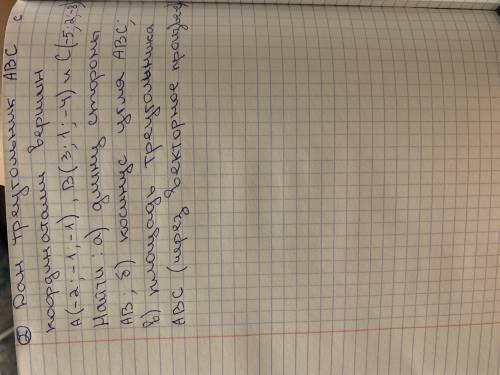 ② Дан треугольник ABC с
координатами вершин
A(-2; -1; -1), B(3; 1; -4) и C(-5; 2;
Найти: а) длину стороны
AB; б) косинус угла ABC;
в) площадь треугольника
ABC (через векторное